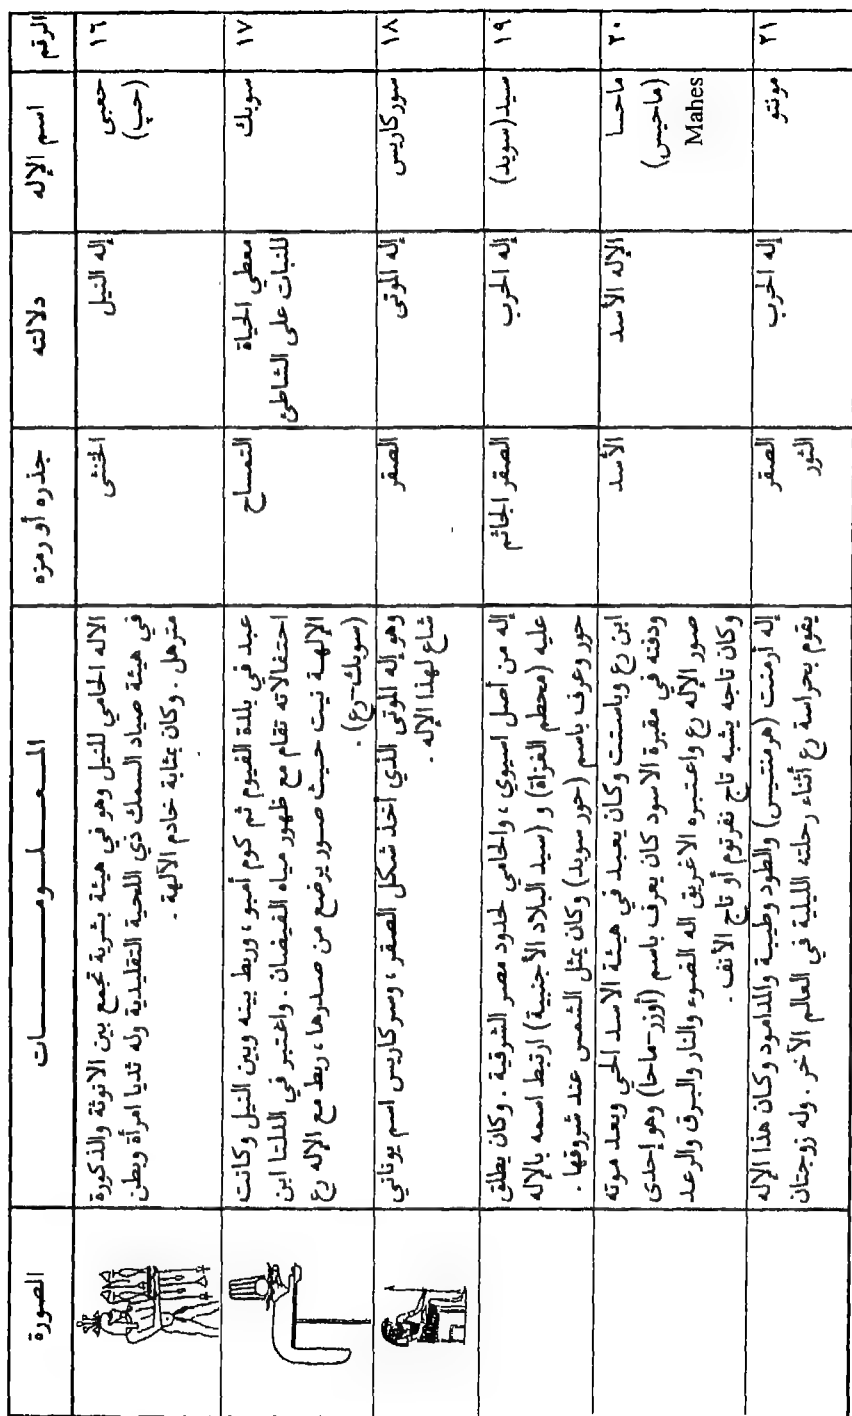 الرقم
اسم الإله
دلالته
جذره أو رمزه
المعلومات
الصورة
١٦
حعبى
(حب)
إله النيل
الخنثى
الاله الحامي للنيل وهو في هيئة بشرية تجمع بين الانوثة والذكورة
في هيئة صياد السمك ذي اللحية التقليدية وله ثديا امرأة وبطن
مترهل . وكان بمثابة خادم الآلهة .
١٧
سوبك
معطي الحياة
للنبات على الشاطئ
التمساح
عبد في بلدة الفيوم ثم كوم أمبو ، وربط بينه وبين النيل وكانت
احتفالاته تقام مع ظهور مياه الفيضان . واعتبر في الدلتا ابن
الإلهة نيت حيث صور يرضع من صدرها ، ربط مع الإله رع
(سوبك-رع) .
١٨
سوركاريس
إله الموتى
الصقر
وهو إله الموتى الذي أخذ شكل الصقر ، وسركاريس اسم يوناني
شاع لهذا الإله .
١٩
سيد (سوبد)
إله الحرب
الصقر الجاثم
إله من أصل اسيوي ، والحامي لحدود مصر الشرقية . وكان يطلق
عليه (محطم الغزاة) و (سيد البلاد الأجنبية) ارتبط اسمه بالإله
حور وعرف باسم (حور سوبد) وكان يمثل الشمس عند شروقها .
٢٠
ماحسا
(ماحيس)
Mahes
الإله الأسد
الأسد
ابن رع وباستت وكان يعبد في هيئة الاسد الحي وبعد موته
ودفنه في مقبرة الاسود كان يعرف باسم (أوزر-ماحا) وهو إحدى
صور الإله رع واعتبره الاغريق اله الضوء والنار والبرق والرعد
وكان تاجه يشبه تاج نفرتوم أو تاج الأتف .
٢١
مونتو
إله الحرب
الصقر
الثور
إله أرمنت (هرمنتيس) والطود وطيبة والمدامود وكان هذا الإله
يقوم بحراسة رع أثناء رحلته الليلية في العالم الآخر . وله زوجتان